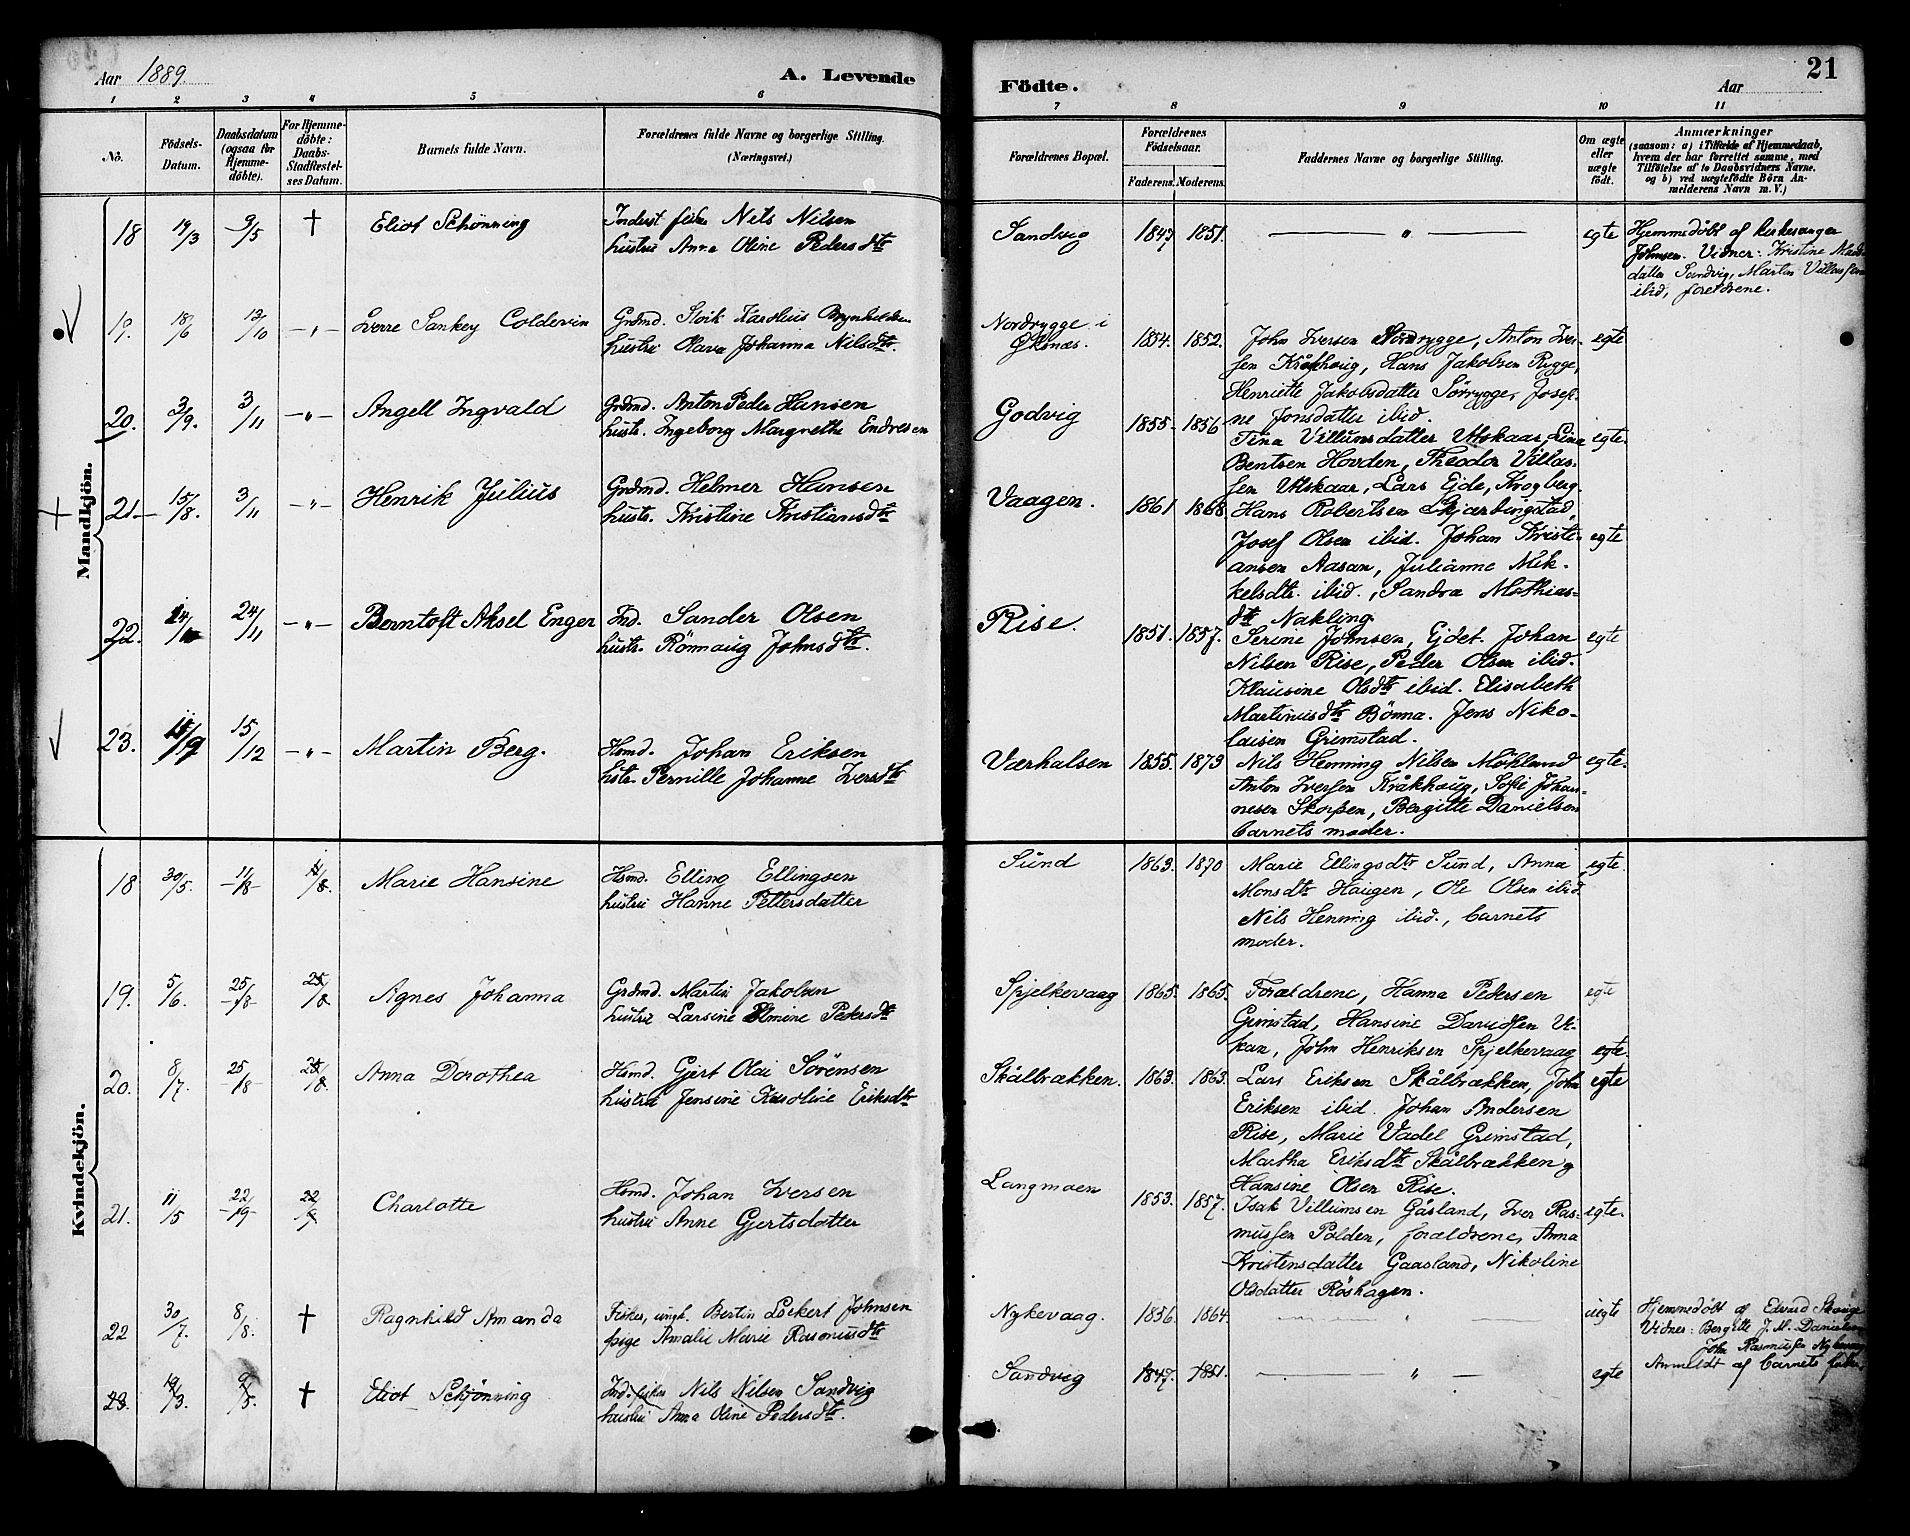 Aar 1889.
A. Levende
Födte.
Aar
21
1 2 3 4 5 6 7 8 9 10 11
No.
Födsels-Datum.
Daabsdatum (ogsaa for Hjemme-döbte).
For Hjemme-döbte: Daabs-Stadfæstel-ses Datum.
Barnets fulde Navn.
Forældrenes fulde Navne og borgerlige Stilling.
(Næringsvei.)
Forældrenes Bopæl.
Forældrenes Födselsaar.
Faderens. Moderens.
Faddernes Navne og borgerlige Stilling.
Om ægte eller uægte födt.
Anmærkninger
(saasom: a) i Tilfælde af Hjemmedaab,
hvem der har forrettet samme, med
Tilföielse af to Daabsvidners Navne.
og b) ved uægtefödte Börn An-
melderens Navn m. V.)
Mandkjön.
18 19/3 9/5 † Eliot Schønning
Inderst fisker Nils Nilsen
hustru Anna Oline Pedersdtr
Sandvig 1847 1851. — " — egte
Hjemmedöbt af kirkesanger
Johnsen. Vidner: Kristine Mads-
datter Sandvig, Martin Villassen
ibid, forældrene.
19. 18/6 12/10 -"- Sverre Sankey Coldevin
Grdmd. Sloik Karolius Brynhildsen
hustru Olava Johanna Nilsdtr.
Nordrygge i Øksnes. 1854. 1852.
John Iversen Nordrygge, Anton Iver-
sen Kråkhaug, Hans Jakobsen Rygge,
Henriette Jakobsdatter Sörrygge, Josefi-
ne Jonsdatter ibid.
egte
20. 3/9. 3/11 -"- Angell Ingvald
Grdmd. Anton Peder Hansen
hustr. Ingeborg Margrethe Endresen
Godvig 1855- 1856
Tina Villumsdatter Utskaar, Lina
Bentsen Hovden, Theodor Villas-
sen Utskaar, Lars Ejde, Krogberg
egte.
21. 15/8. 3/11 -"- Henrik Julius
Grdmd. Helmer Hansen
hustr. Kristine Kristiansdtr
Vaagen. 1861 1868.
Hans Robertsen Skjærbingstad,
Josef Olsen ibid. Johan Kristi-
ansen Aasan, Julianne Mik-
kelsdtr. ibid., Sandra Mathias-
dtr Nakling
egte
22. 24/11 -"- Berntoft Aksel Enger
Ind. Sander Olsen
hustr. Rönnaug Johnsdtr.
Rise. 1851. 1857.
Serine Johnsen, Ejdet. Johan
Nilsen Rise, Peder Olsen ibid.
Klausine Olsdtr ibid. Elisabeth
Martinusdtr Bönna. Jens Niko-
laisen Grimstad.
egte
23. 15/12 -"- Martin Berg.
Hsmd. Johan Eriksen
hstr. Pernille Johanne Iversdtr
Værhalsen 1855. 1873
Nils Henning Nilsen Möklund
Anton Iversen Kråkhaug, Sofie Johan-
nesen Skorpen, Bergitte Danielsen
barnets moder.
egte.
Kvindekjön.
18 30/5. 11/8 11/8. Marie Hansine
Hsmd. Elling Ellingsen
hustru Hanne Pettersdatter
Sund 1863. 1870
Marie Ellingsdtr Sund, Anna
Monsdtr Haugen, Ole Olsen ibid
Nils Henning ibid., barnets
moder.
egte.
19. 5/6. 25/8 25/8 Agnes Johanna
Grdmd. Martin Jakobsen
hustru Larsine Elmine Pedersdtr
Spjelkevaag 1865. 1865.
Forældrene, Hanna Pedersen
Grimstad, Hansine Davidsen Vi-
kan, John Henriksen Spjelkevaag
egte
egte.
20. 8/7. 25/8 25/8. Anna Dorothea
Hsmd. Gjert Olai Sörensen
hustru Jensine Karoline Eriksdtr
Skålbrækken. 1863. 1863.
Lars Eriksen Skålbrækken, John
Eriksen ibid. Johan Andersen
Rise, Marie Vadel Grimstad,
Martha Eriksdtr Skålbrækken og
Hansine Olsen Rise.
egte
21. 11/5 22/9 22/9 Charlotte
Hsmd. Johan Iversen
hustru Anne Gjertsdatter
Langmoen 1853. 1857.
Isak Villumsen Gåsland, Iver Ras-
mussen Polden, forældrene, Anna
Kristensdatter Gaasland, Nikoline
Olsdatter Röshagen.
egte.
22 30/7. 8/8. † Ragnhild Amanda
Fisker, ungk. Bertin Lockert Johnsen
pige Amalie Marie Rasmusdtr
Nykevaag. 1856. 1864. uegte
Hjemmedöbt af Edvard Skauge
Vidner: Bergitte J. M. Danielsen
John Rasmussen Nykvaag
Anmeldt af barnets fader.
23. 19/3. 9/5. † Eliot Schjønning
Ind. fisker Nils Nilsen Sandvig
hustru Anna Oline Pedersdtr.
Sandvig 1847. 1851. — " — egte